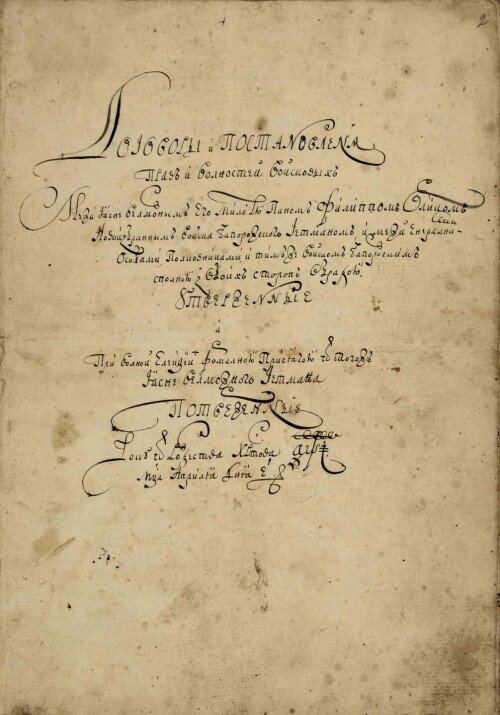 2
Договоры и Постановлѣнѧ
Правъ и волностей войсковыхъ
Межи Ясне велможнымъ Его милостю Паномъ Филиппомъ Орликомъ
Новоизбраннымъ войска Запорожского Гетманомъ и межи Енералнι-
Особами Полковниками и тимъ же войскомъ Запорозкимъ
сполною з обоихъ сторонъ
Утверженные
и
При волной Елекцїи Формалною Присягою ѿ тогожъ
Ясне велможного Гетмана
Потверженные
Року ѿ Рожества Христова аѱі
мца Априля дня е҃